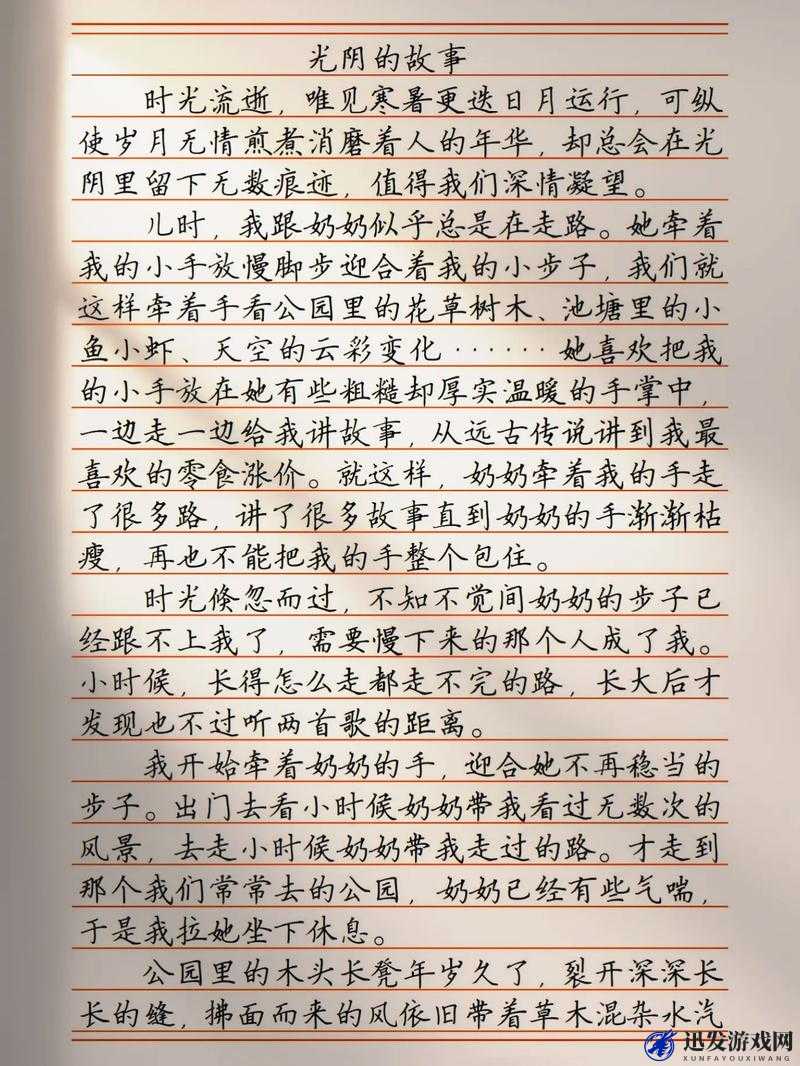 光阴的故事
时光流逝，唯见寒暑更迭日月运行，可纵
使岁月无情煎煮消磨着人的年华，却总会在光
阴里留下无数痕迹，值得我们深情凝望。
儿时，我跟奶奶似乎总是在走路。她牵着
我的小手放慢脚步迎合着我的小步子，我们就
这样牵着手看公园里的花草树木、池塘里的小
鱼小虾、天空的云彩变化……她喜欢把我
的小手放在她有些粗糙却厚实温暖的手掌中，
一边走一边给我讲故事，从远古传说讲到我最
喜欢的零食涨价。就这样，奶奶牵着我的手走
了很多路，讲了很多故事直到奶奶的手渐渐枯
瘦，再也不能把我的手整个包住。
时光倏忽而过，不知不觉间奶奶的步子已
经跟不上我了，需要慢下来的那个人成了我。
小时候，长得怎么走都走不完的路，长大后才
发现也不过听两首歌的距离。
我开始牵着奶奶的手，迎合她不再稳当的
步子。出门去看小时候奶奶带我看过无数次的
风景，去走小时候奶奶带我走过的路。才走到
那个我们常常去的公园，奶奶已经有些气喘，
于是我拉她坐下休息。
公园里的木头长凳年岁久了，裂开深深长
长的缝，拂面而来的风依旧带着草木混杂水汽
迅发游戏网
XUNFAYOUXIWANG